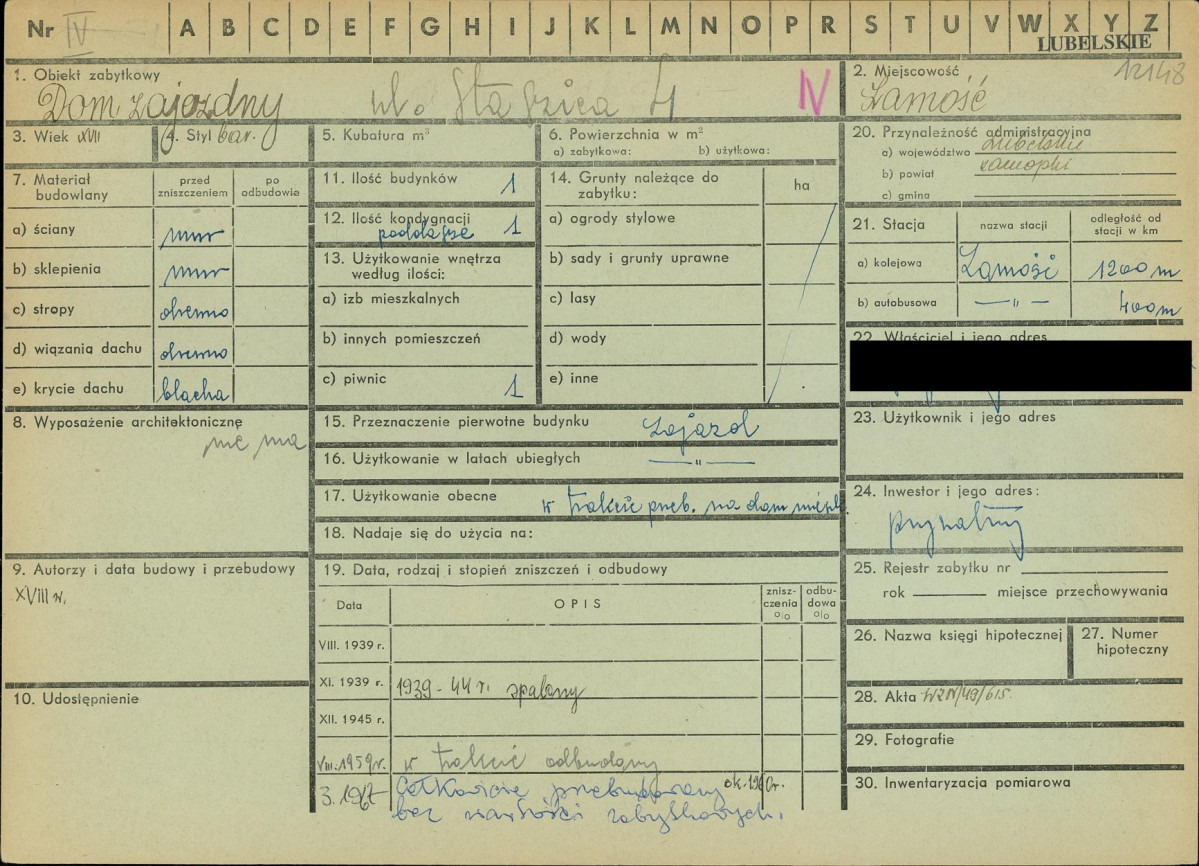 Nr IV A B C D E F G H I J K L M N O P R S T U V W X Y Z
LUBELSKIE
1. Obiekt zabytkowy
Dom zajezdny ul. Staszica 4 IV
2. Miejscowość 12148
Zamość
3. Wiek XVII
4. Styl bar.
5. Kubatura m³
6. Powierzchnia w m²
a) zabytkowa: b) użytkowa:
20. Przynależność administracyjna
a) województwo Lubelskie
b) powiat zamojski
c) gmina
7. Materiał budowlany
przed zniszczeniem
po odbudowie
a) ściany mur
b) sklepienia mur
c) stropy drewno
d) wiązania dachu drewno
e) krycie dachu blacha
11. Ilość budynków 1
12. Ilość kondygnacji 1
poddasze
13. Użytkowanie wnętrza
według ilości:
a) izb mieszkalnych
b) innych pomieszczeń
c) piwnic 1
14. Grunty należące do
zabytku:
ha
a) ogrody stylowe
b) sady i grunty uprawne
c) lasy
d) wody
e) inne
21. Stacja
nazwa stacji
odległość od
stacji w km
a) kolejowa Zamość 1200 m
b) autobusowa —"— 400 m
22. Właściciel i jego adres
8. Wyposażenie architektoniczne
nie ma
15. Przeznaczenie pierwotne budynku zajazd
16. Użytkowanie w latach ubiegłych —"—
17. Użytkowanie obecne w trakcie przeb. na dom mieszk
18. Nadaje się do użycia na:
23. Użytkownik i jego adres
24. Inwestor i jego adres:
prywatny
9. Autorzy i data budowy i przebudowy
XVIII w.
10. Udostępnienie
19. Data, rodzaj i stopień zniszczeń i odbudowy
Data
OPIS
znisz-
czenia
%
odbu-
dowa
%
VIII. 1939 r.
XI. 1939 r. 1939-44 r. spalony
XII. 1945 r.
VIII. 1959 r. w trakcie odbudowy
3. 1967 Całkowicie przebudowany ok. 1960 r.
bez wartości zabytkowych.
25. Rejestr zabytku nr
rok miejsce przechowywania
26. Nazwa księgi hipotecznej
27. Numer
hipoteczny
28. Akta WZN/49/615
29. Fotografie
30. Inwentaryzacja pomiarowa